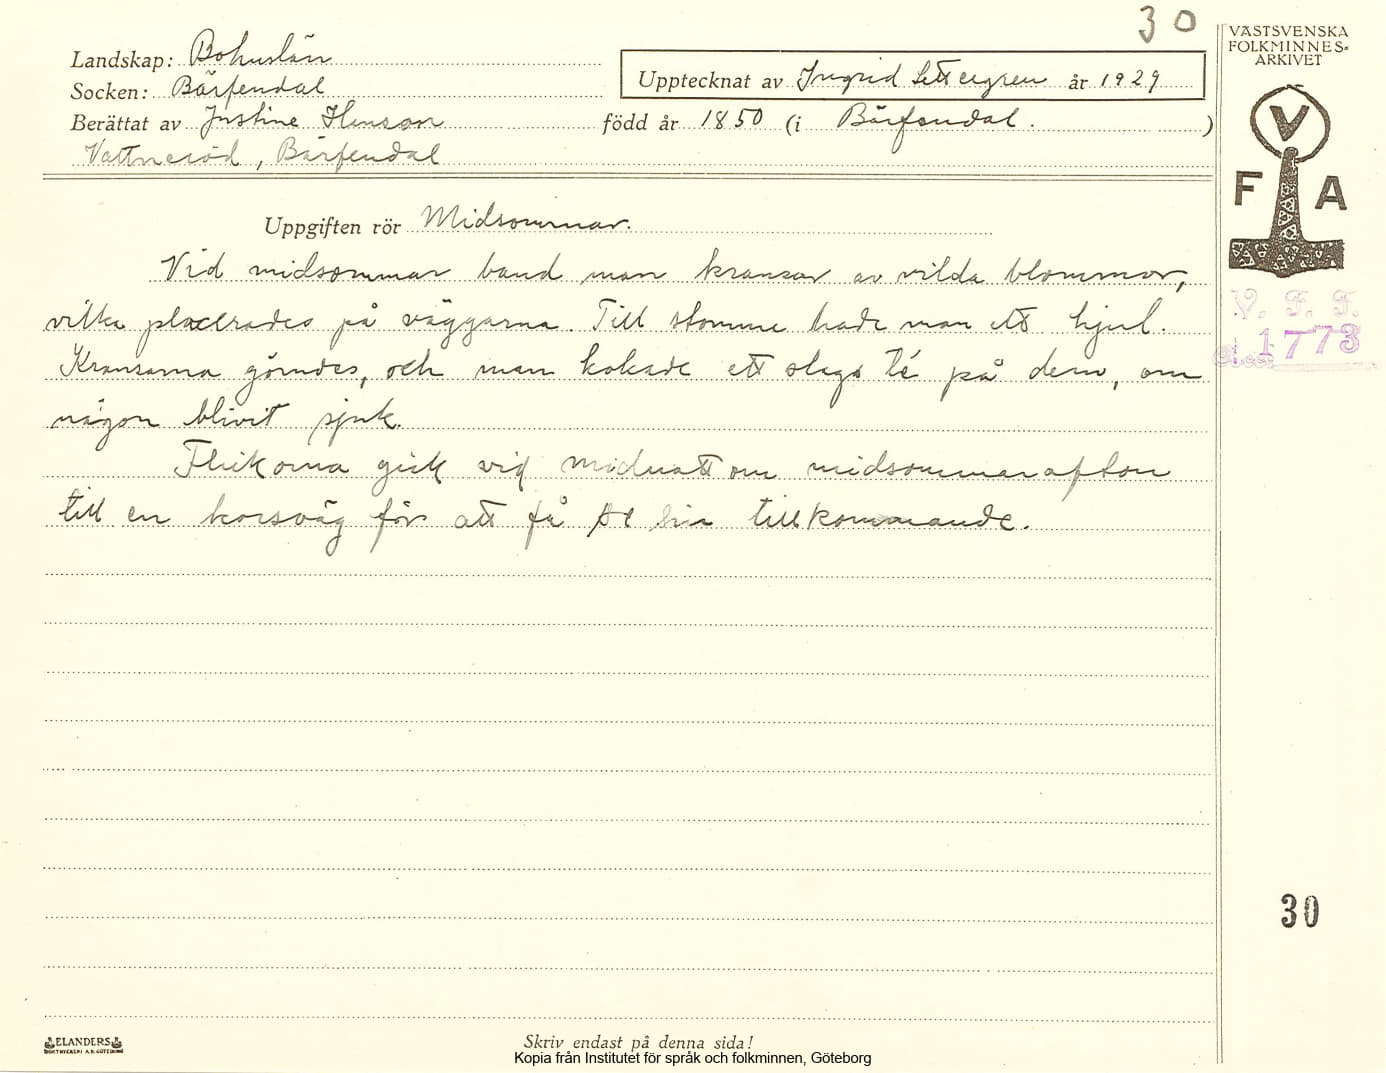 30
VÄSTSVENSKA
FOLKMINNES-
ARKIVET
Landskap: Bohuslän
Socken: Bärfendal
Upptecknat av Ingrid Settergren år 1929
Berättat av Justine Hanson född år 1850 (i Bärfendal.)
Vattneröd, Bärfendal
V
F A
Uppgiften rör Midsommar.
Vid midsommar band man kransar av vilda blommor,
vilka placerades på väggarna. Till stomme hade man ett hjul.
Kransarna gömdes, och man kokade ett slags té på dem, om
någon blivit sjuk.
Flickorna gick vid midnatt om midsommarafton
till en korsväg för att få se sin tillkommande.
V. F. F.
1773
30
ELANDERS
BOKTRYCKERI A.B. GÖTEBORG
Skriv endast på denna sida!
Kopia från Institutet för språk och folkminnen, Göteborg